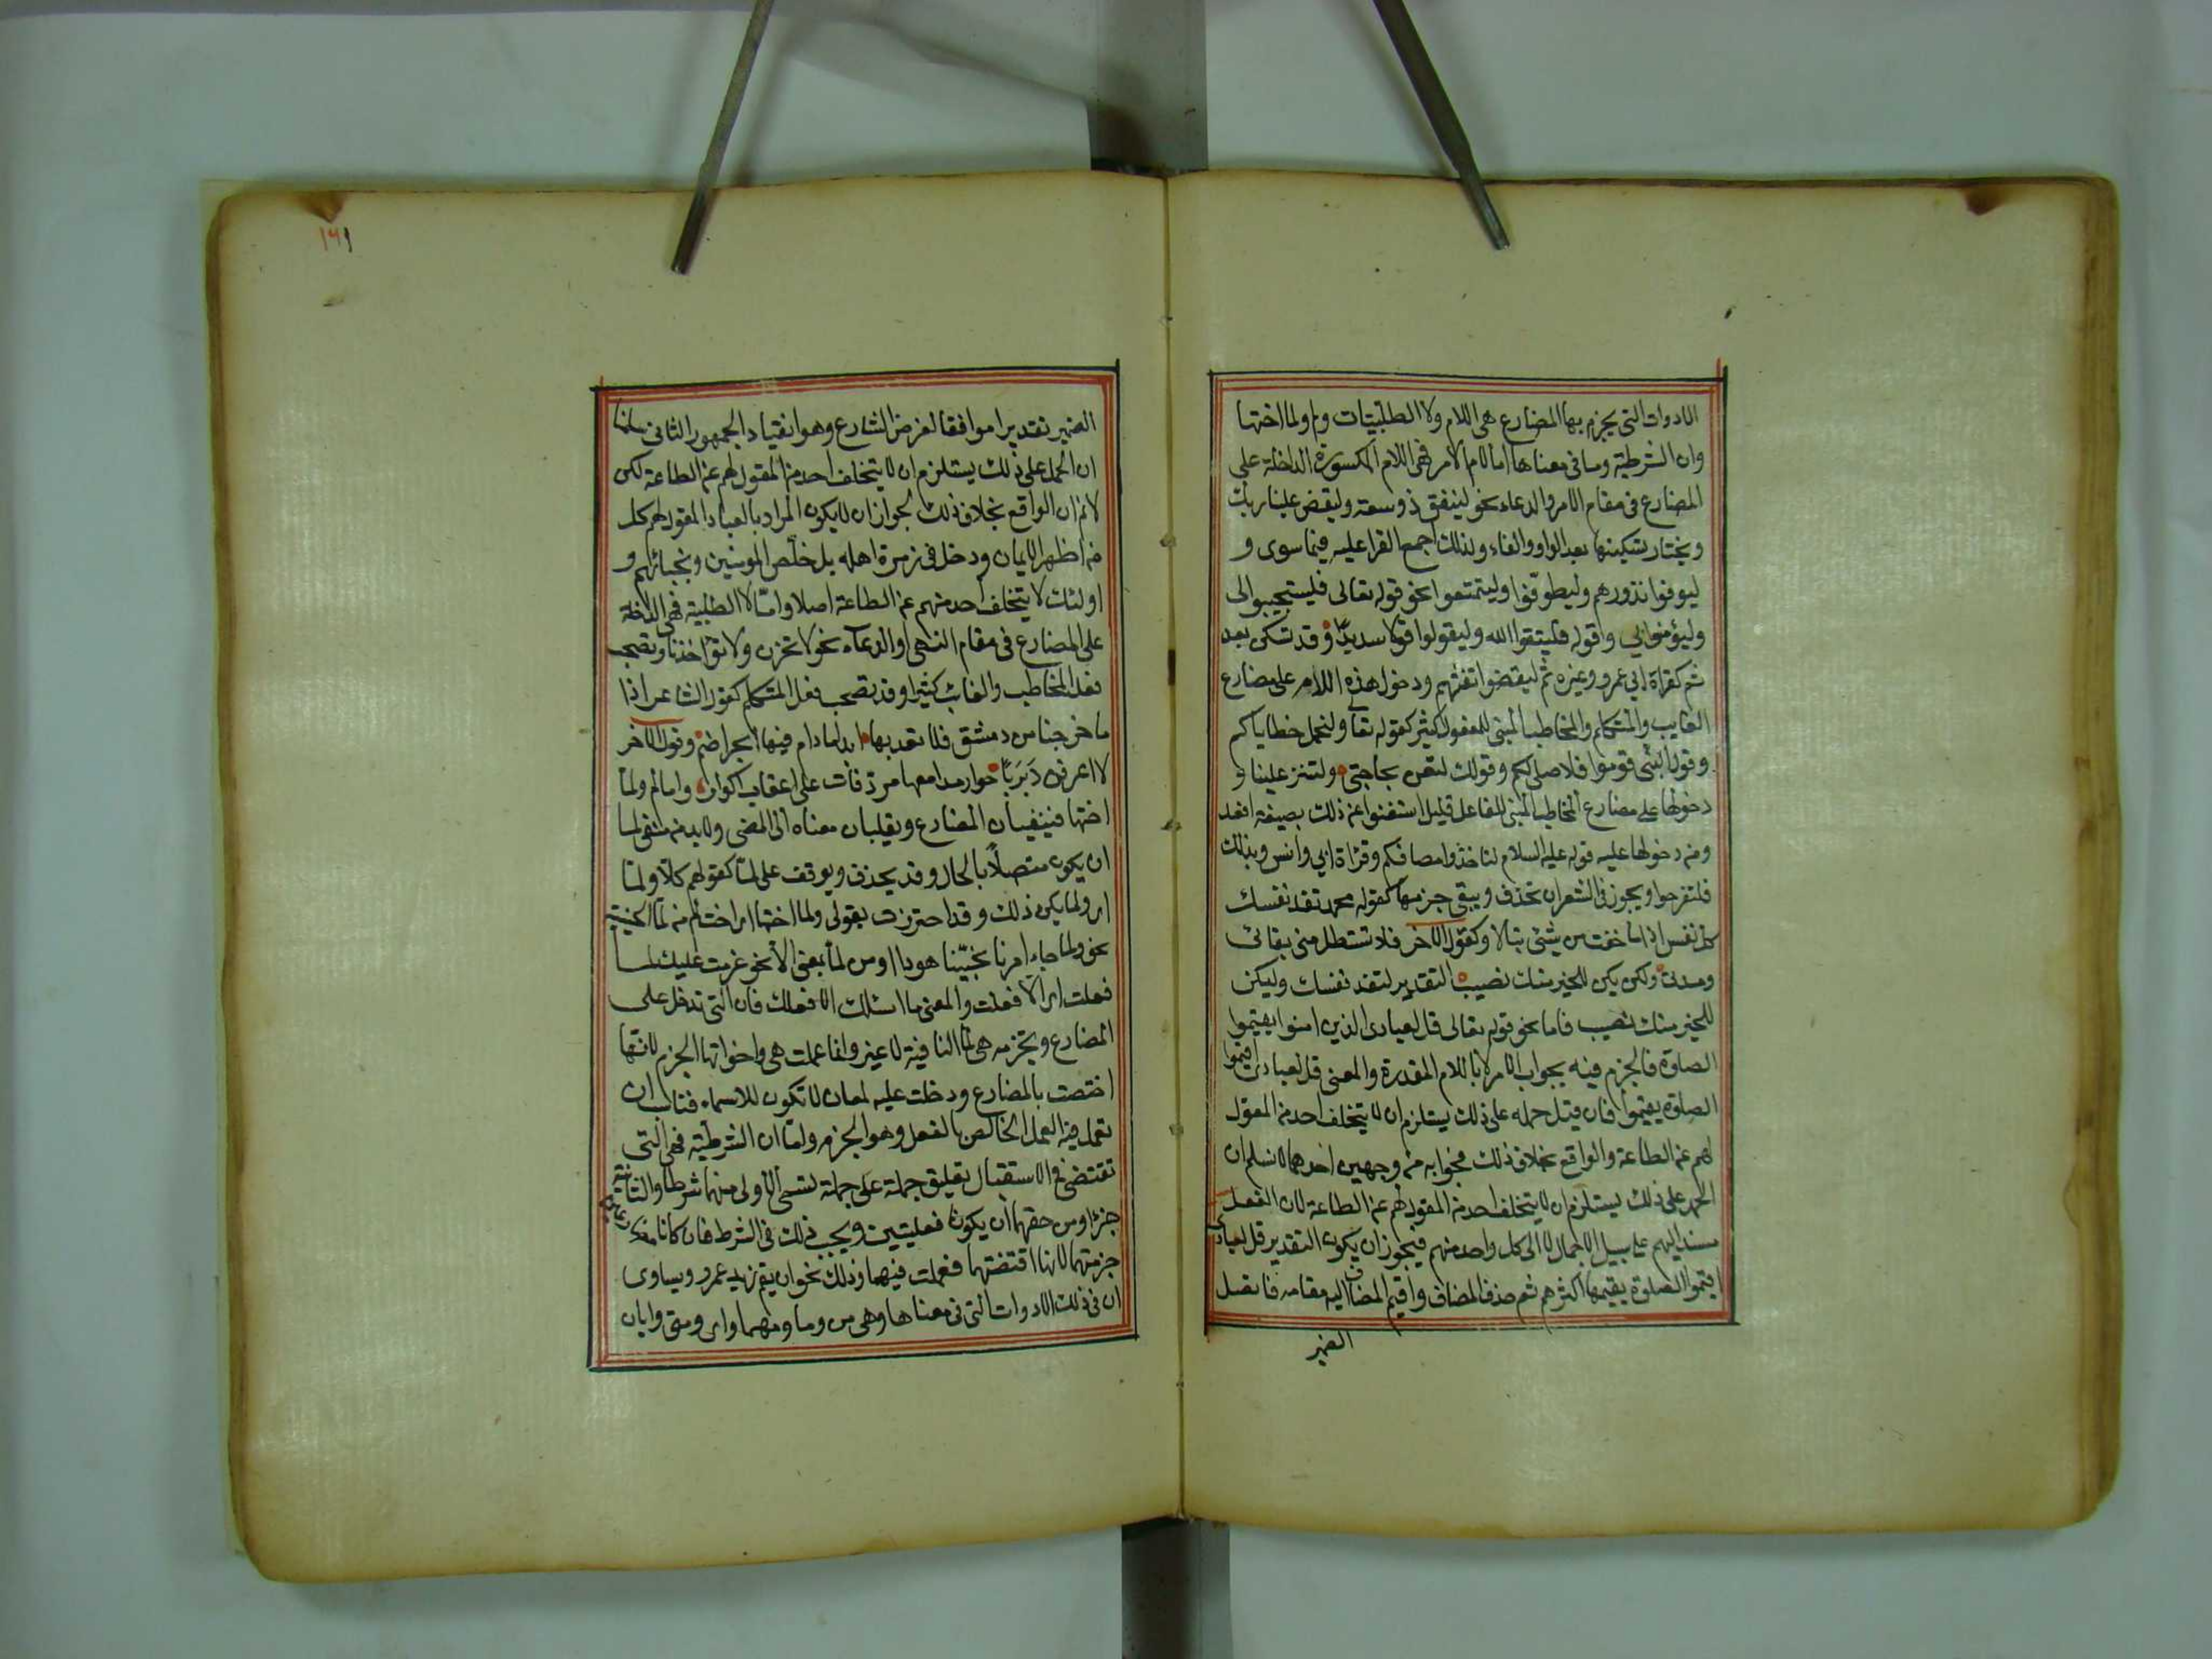 الادوات التي يجزم بها المضارع هي اللام ولا الطلبيتان ولم ولما اختها
وان الشرطية وما في معناها اما لام الامر فهي اللام المكسورة الداخلة على
المضارع في مقام الامر والدعاء نحو لينفق ذو سعته وليقض علينا ربك
ويختار تسكينها بعد الواو والفاء ولذلك اجمع القرا عليه فيما سوى و
ليوفوا نذورهم وليطوّفوا وليتمتعوا نحو قوله تعالى فليستجيبوا لي
وليؤمنوا بي وقوله فليتقوا الله وليقولوا قولا سديدًا وقد تسكن بعد
ثم كقراة ابي عمرو وغيره ثم ليقضوا تفثهم ودخول هذه اللام على مضارع
الغايب والمتكلم والمخاطب المبني للمفعول كثير كقوله تعالى ولنحمل خطاياكم
وقول النبي قوموا فلاصلي لكم وقولك لتعن بحاجتي ولتنز علينا و
دخولها على مضارع المخاطب المبني للفاعل قليل استغنوا عن ذلك بصيغة افعل
ومن دخولها عليه قوله عليه السلام لتاخذوا مصافكم وقراة ابي وانس وبذلك
فلتفرحوا ويجوز في الشعر ان تحذف ويبقى جزمها كقوله محمد تفد نفسك
كل نفس اذا ما خفت من شئ تبالا وكقول الآخر فلا تستطل مني بقائي
ومدتي ولكن يكن للخير منك نصيب التقدير لتفد نفسك وليكن
للخير منك نصيب فاما نحو قوله تعالى قل لعبادي الذين امنوا يقيموا
الصلوة فالجزم فيه بجواب الامر لا باللام المقدرة والمعنى قل لعبادي اقيموا
الصلوة يقيموا فان قيل حمله على ذلك يستلزم ان لا يتخلف احد من المقول
لهم عن الطاعة والواقع بخلاف ذلك فجوابه من وجهين احدهما لا نسلم ان
الحمل على ذلك يستلزم ان لا يتخلف احد من المقول لهم عن الطاعة لان الفعل
مسند اليهم على سبيل الاجمال لا الى كل واحد منهم فيجوز ان يكون التقدير قل لعبادي
اقيموا الصلوة يقيمها اكثرهم ثم حذف المضاف واقيم المضاف اليه مقامه فاتصل
الضمير
١٢١
الضمير تقديرا موافقا لغرض الشارع وهو انقياد الجمهور الثاني سلمنا
ان الحمل على ذلك يستلزم ان لا يتخلف احد من المقول لهم عن الطاعة لكن
لانم ان الواقع بخلاف ذلك لجواز ان لا يكون المراد بالعباد المقول لهم كل
من اظهر الايمان ودخل في زمرة اهله بل خلّص المومنين ونجبائهم و
اولئك لا يتخلف احد منهم عن الطاعة اصلا وامّا لا الطلبية فهي الداخلة
على المضارع في مقام النهي والدعاء نحو لا تحزن ولا تؤاخذنا وتصحب
فعل المخاطب والغائب كثيرا وقد تصحب فعل المتكلم كقول الشاعر اذا
ما خرجنا من دمشق فلا نعد بها ابدا ما دام فيها الجراضم وقول الآخر
لا اعرفن رَبرَبًا حورا مدامعها مردفات على اعقاب اكوار واما لم ولمّا
اختها فينفيان المضارع ويقلبان معناه الى المضي ولابد من منفي لما
ان يكون متصلاً بالحال وقد يحذف ويوقف على لمّا كقولهم كلّا ولمّا
اي ولما يكن ذلك وقد احترزت بقولي ولما اختها اي اخت لم من لمّا الحينية
نحو ولما جاء امرنا نجّينا هودا ومن لمّا بمعنى الّا نحو عزمت عليك لمّا
فعلت اي الّا فعلت والمعنى ما اسئلك الا فعلك فان التي تدخل على
المضارع وتجزمه هي لمّا النافية لا غير وانما عملت هي واخواتها الجزم لانها
اختصت بالمضارع ودخلت عليه لمعان لا تكون للاسماء فناسب ان
تعمل فيه العمل الخالص بالفعل وهو الجزم وامّا ان الشرطية فهي التي
تقتضي في الاستقبال تعليق جملة على جملة تسمى الأولى منهما شرطا والثانية
جزاء ومن حقهما ان يكونا فعليتين ويجب ذلك في الشرط فان كانا مضارعين
جزمتهما لانها اقتضتهما فعملت فيهما وذلك نحو ان يقم زيد عمرو ويساوى
ان في ذلك الادوات التي في معناها وهي من وما ومهما واي ومتى وايان